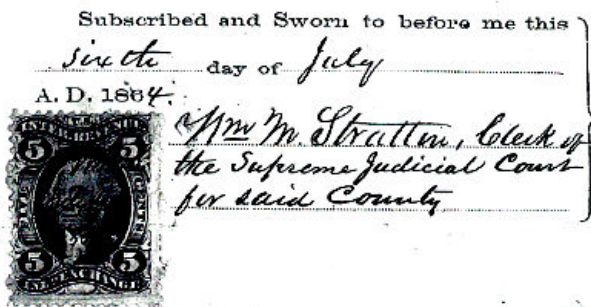 Subscribed and Sworn to before me this
sixth day of July
A. D. 1864.
Wm M. Stratton, Clerk of
the Supreme Judicial Court
for said County
5 5
5 5
EXCHANGE